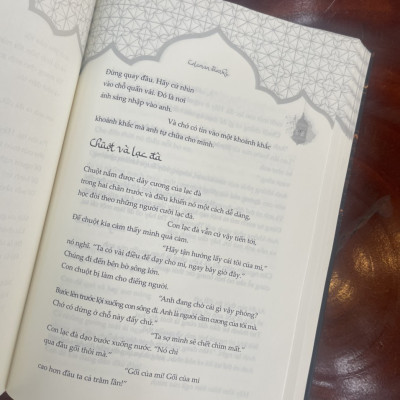 Coleman Barks
Đừng quay đầu. Hãy cứ nhìn
vào chỗ quấn vải. Đó là nơi
ánh sáng nhập vào anh.
Và chớ có tin vào một khoảnh khắc
khoảnh khắc mà anh tự chữa cho mình.
Chuột và lạc đà
Chuột nắm được dây cương của lạc đà
trong hai chân trước và điều khiển nó một cách dễ dàng,
học đòi theo những người cưỡi lạc đà.
Con lạc đà vẫn cứ vậy tiến tới,
Để chuột kia cảm thấy mình quả cảm.
"Hãy tận hưởng lấy cái tôi của mi,"
nó nghĩ. "Ta có vài điều để dạy cho mi, ngay bây giờ đây."
Chúng đi đến bên bờ sông lớn.
Con chuột bị làm cho điếng người.
"Anh đang chờ cái gì vậy phỏng?
Bước lên trước lội xuống con sông đi. Anh là người cầm cương của tôi mà.
Chớ có dừng ở chỗ này đấy chứ."
"Ta sợ mình sẽ chết chìm mất."
Con lạc đà dạo bước xuống nước. "Nó chỉ
qua đầu gối thôi mà."
"Gối của mi! Gối của mi
cao hơn đầu ta cả trăm lần!"